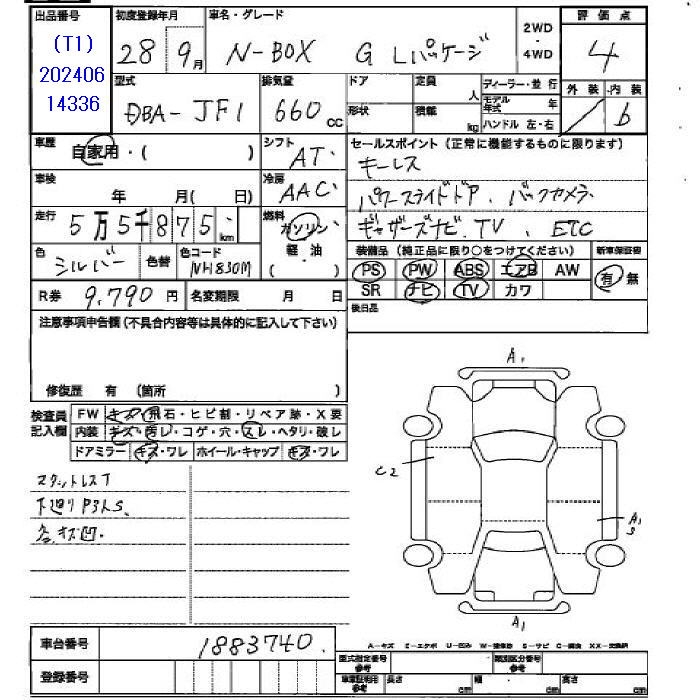 出品番号
(T1)
202406
14336
初度登録年月
28 9月
車名・グレード
N-BOX G Lパッケージ
2WD
4WD
評価点
4
外装 内装
b
型式
DBA-JF1
排気量
660 cc
ドア
形状
定員
人
積載
kg
ディーラー・並行
モデル年式 年
ハンドル 左・右
車歴
自家用・( )
シフト
AT
セールスポイント(正常に機能するものに限ります)
キーレス
パワースライドドア、バックカメラ
ギャザーズナビ、TV、ETC
車検
年 月(日)
冷房
AAC
走行
5万5千875 km
燃料
ガソリン
軽・油
( )
色
シルバー
色替
色コード
NH830M
装備品(純正品に限り○をつけてください)
新車保証書
PS PW ABS エアB AW
SR ナビ TV カワ
有 無
R券 9,790 円
名変期限 月 日
後日品
注意事項申告欄(不具合内容等は具体的に記入して下さい)
修復歴 有 (箇所 )
検査員
記入欄
FW キズ・飛石・ヒビ割・リペア跡・X要
内装 キズ・汚レ・コゲ・穴・スレ・ヘタリ・破レ
ドアミラー キズ・ワレ ホイール・キャップ キズ・ワレ
スタットレスT
下廻りPスレS
A1
C2
A1
S
A1
車台番号
1883740
登録番号
A-キズ E-エクボ U-凹み W-補修跡 S-サビ C-腐食 XX-交換済
型式指定番号
参考
類別区分番号
参考
車庫証明用
参考
長さ cm
幅 cm
高さ cm